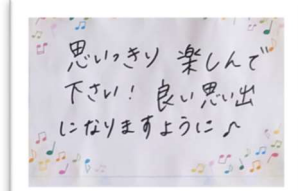 思いっきり 楽しんで
下さい! 良い思い出
になりますように♪